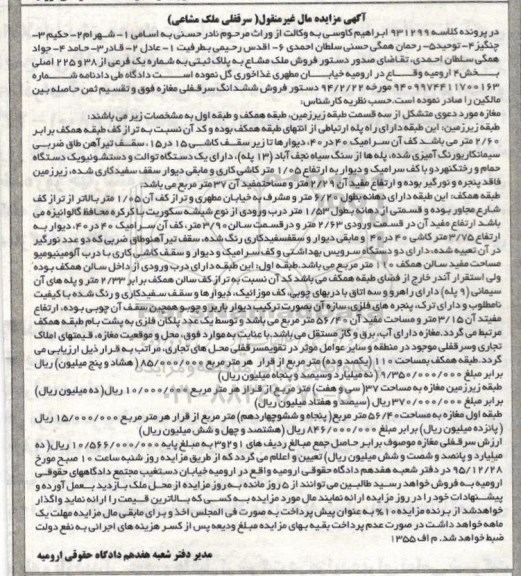 آگهی مزایده مال غیرمنقول( سرقفلی ملک مشاعی)
در پرونده کلاسه ۹۳۱۲۹۹ ابراهیم کاوسی به وکالت از وراث مرحوم نادر حسنی به اسامی ۱- شهرام۲- حکیم ۳-
چنگیز۴- توحید۵- رحمان همگی حسنی سلطان احمدی ۶- اقدس رحیمی بطرفیت ۱- عادل ۲- قادر۳- حامد ۴- جواد
همگی سلطان احمدی، تقاضای صدور دستور فروش ملک مشاع به پلاک ثبتی به شماره یک فرعی از ۳۸ و ۲۲۵ اصلی
بخش۴ ارومیه واقع در ارومیه خیابان مطهری غذاخوری گل نموده است دادگاه طی دادنامه شماره
۹۴۰۹۹۷۴۴۱۱۷۰۰۱۶۳ مورخه ۹۴/۲/۲۲ دستور فروش ششدانگ سرقفلی مغازه فوق و تقسیم ثمن حاصله بین
مالکین را صادر نموده است.حسب نظریه کارشناس:
مغازه مورد دعوی متشکل از سه قسمت طبقه زیرزمین، طبقه همکف و طبقه اول به مشخصات زیر می باشند:
طبقه زیرزمین: این طبقه دارای راه پله ارتباطی از انتهای طبقه همکف بوده و کد آن نسبت به تراز کف طبقه همکف برابر
۲/۶۰ متر می باشد کف آن سرامیک ۴۰ در ۴۰، دیوار ها تا زیر سقف کاشی ۱۵ در۱۵، سقف تیرآهن طاق ضربی
سیمانکاریورنگ آمیزی شده، پله ها از سنگ سیاه نجف آباد (۱۳ پله)، دارای یک دستگاه توالت و دستشوئیویک دستگاه
حمام و رختکنهردو با کف سرامیک و دیوار به ارتفاع ۱/۰۵ متر کاشی کاری و مابقی دیوار سقف سفیدکاری شده، زیرزمین
فاقد پنجره و نورگیر بوده و ارتفاع مفید آن ۲/۲۹ متر و مساحتمفید آن ۳۷ متر مربع می باشد.
طبقه همکف: این طبقه دارای دهانه بطول ۶/۲۰ متر و مشرف به خیابان مطهری و تراز کف آن ۱/۰۵ متر بالاتر از تراز کف
شارع مجاور بوده و قسمتی از دهانه بطول ۱/۵۳ متر درب ورودی از نوع شیشه سکوریت با کرکره محافظ گالوانیزه می
باشد ارتفاع مفید آن در قسمت ورودی ۲/۶۳ متر و در قسمت سالن ۳/۹۰ متر، کف آن سرامیک ۴۰ در ۴۰، دیوار به
ارتفاع ۳/۷۵ متر کاشی ۴۰ در ۴۰ و مابقی دیوار و سقفسفیدکاری رنگ شده، سقف تیرآهنوطاق ضربی که دو عدد نورگیر
در آن تعبیه شده، دارای دو دستگاه سرویس بهداشتی و کف سرامیک و دیوار و سقف کاشی کاری با درب آلومینیومیو
مساحت مفید سالن همکف ۱۱۰ متر مربع می باشد.طبقه اول: این طبقه دارای درب ورودی از داخل سالن همکف بوده
ولی استقرار آندر خارج از فضای طبقه همکف می باشد کد آن نسبت به تراز کف سالن همکف برابر ۲/۳۳ متر و پله های آن
سیمانی (۹ پله) دارای راهرو و سه اتاق با دربهای چوبی، کف موزائیک، دیوارها و سقف سفیدکاری و رنگ شده با کیفیت
نامطلوب و دارای ترک، پنجره های فلزی، سازه آن بصورت ترکیب دیوار باربر و چوب و همچنین سقف آن چوبی بوده، ارتفاع
مفیتد آن ۳/۱۵ متر و مساحت مفید آن ۵۶/۴۰ متر مربع می باشد و توسط یک عدد پلکان فلزی به پشت بام طبقه همکف
مرتبط می گردد.مغازه دارای آب، برق و گاز مستقل می باشد.با عنایت به موارد فوق، محل و موقعیت مغازه، قیمتهای املاک
تجاری وسرقفلی موجود در منطقه و سایر عوامل موثر در تقویمسرقفلی محل های تجاری، مراتب به قرار ذیل ارزیابی می
گردد.طبقه همکف بمساحت ۱۱۰ (یکصد و ده) متر مربع از قرار هر متر مربع ۸۵/۰۰۰/۰۰۰ ( هشتاد و پنج میلیون) ریال
برابر مبلغ ۹/۳۵۰/۰۰۰/۰۰۰ (نه میلیارد وسیصد و پنجاه میلیون ریال)
طبقه زیرزمین مغازه به مساحت ۳۷ (سی و هفت) متر مربع از قرار هر متر مربع ۱۰/۰۰۰/۰۰۰ ریال(ده میلیون ریال)
برابر مبلغ ۳۷۰/۰۰۰/۰۰۰ریال (سیصد و هفتاد میلیون ریال)
طبقه اول مغازه به مساحت ۵۶/۴۰ متر مربع( پنجاه و ششوچهاردهم) متر مربع از قرار هر متر مربع ۱۵/۰۰۰/۰۰۰ ریال
( پانزده میلیون ریال) برابر مبلغ ۸۴۶/۰۰۰/۰۰۰ ریال (هشتصد و چهل و شش میلیون ریال)
ارزش سرقفلی مغازه موصوف برابر حاصل جمع مبالغ ردیف های ۱و۲و۳ به مبلغ پایه ۱۰/۵۶۶/۰۰۰/۰۰۰ ریال(ده
میلیارد و پانصد و شصت و شش میلیون ریال) تعیین و اعلام می گردد که از طریق مزایده روز شنبه ساعت ۱۰ صبح مورخ
۹۵/۱۲/۲۸ در دفتر شعبه هفدهم دادگاه حقوقی ارومیه واقع در ارومیه خیابان دستغیب مجتمع دادگاههای حقوقی
ارومیه به فروش خواهد رسید طالبین می توانند از ۵ روز مانده به روز مزایده از محل ملک بازدید بعمل آورده و
پیشنهادات خود را در روز مزایده ارائه نمایند مال مورد مزایده به کسی که بالاترین قیمت را ارائه نماید واگذار
خواهدشد از برنده مزایده ۱۰% به عنوان پیش پرداخت به صورت فی المجلس اخذ و برای مابقی مال مزایده مهلت یک
ماهه خواهد داشت در صورت عدم پرداخت بقیه بهای مزایده مبلغ ودیعه پس از کسر هزینه های اجرائی به نفع دولت
ضبط خواهد شد. م الف ۱۳۵۵
مدیر دفتر شعبه هفدهم دادگاه حقوقی ارومیه